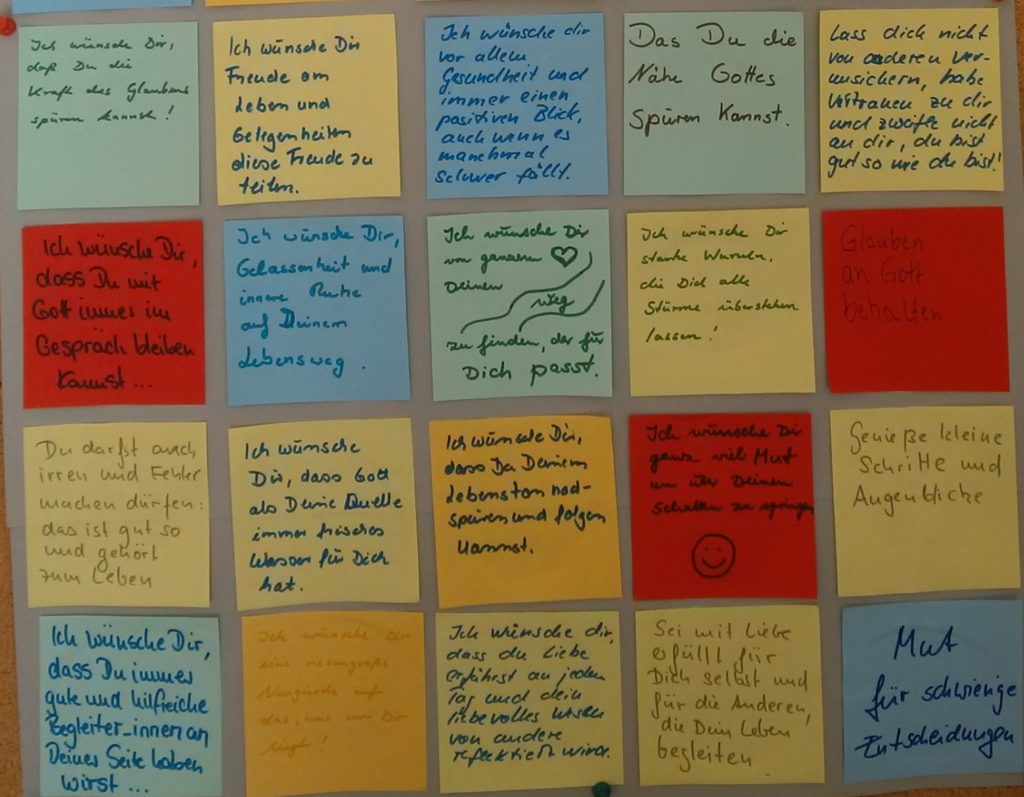 Ich wünsche Dir,
daß Du die
Kraft des Glaubens
spüren kannst!
Ich wünsche Dir
Freude am
Leben und
Gelegenheiten
diese Freude zu
teilen.
Ich wünsche dir
vor allem
Gesundheit und
immer einen
positiven Blick,
auch wenn es
manchmal
schwer fällt.
Das Du die
Nähe Gottes
spüren kannst.
Lass dich nicht
von anderen ver-
unsichern, habe
Vertrauen zu dir
und zweifle nicht
an dir, du bist
gut so wie du bist!
Ich wünsche Dir,
dass Du mit
Gott immer im
Gespräch bleiben
kannst...
Ich wünsche Dir,
Gelassenheit und
innere Ruhe
auf Deinem
Lebensweg.
Ich wünsche Dir
von ganzem
Deinen
Weg
zu finden, der für
Dich passt.
Ich wünsche Dir
starke Wurzeln,
die Dich alle
Stürme überstehen
lassen!
Glauben
an Gott
behalten
Du darfst auch
irren und Fehler
machen dürfen:
das ist gut so
und gehört
zum Leben
Ich wünsche
Dir, dass Gott
als Deine Quelle
immer frisches
Wasser für Dich
hat.
Ich wünsche Dir,
dass Du Deinem
Lebenston nach-
spüren und folgen
kannst.
Ich wünsche Dir
ganz viel Mut
um über Deinen
Schatten zu springen
Genieße kleine
Schritte und
Augenblicke
Ich wünsche Dir,
dass Du immer
gute und hilfreiche
Begleiter_innen an
Deiner Seite haben
wirst...
Ich wünsche Dir
eine riesengroße
Neugierde auf
das, was vor Dir
liegt!
Ich wünsche dir,
dass du Liebe
erfährst an jedem
Tag und dein
liebevolles Wesen
von andere
reflektiert wird.
Sei mit Liebe
erfüllt für
Dich selbst und
für die Anderen,
die Dein Leben
begleiten
Mut
für schwierige
Entscheidungen